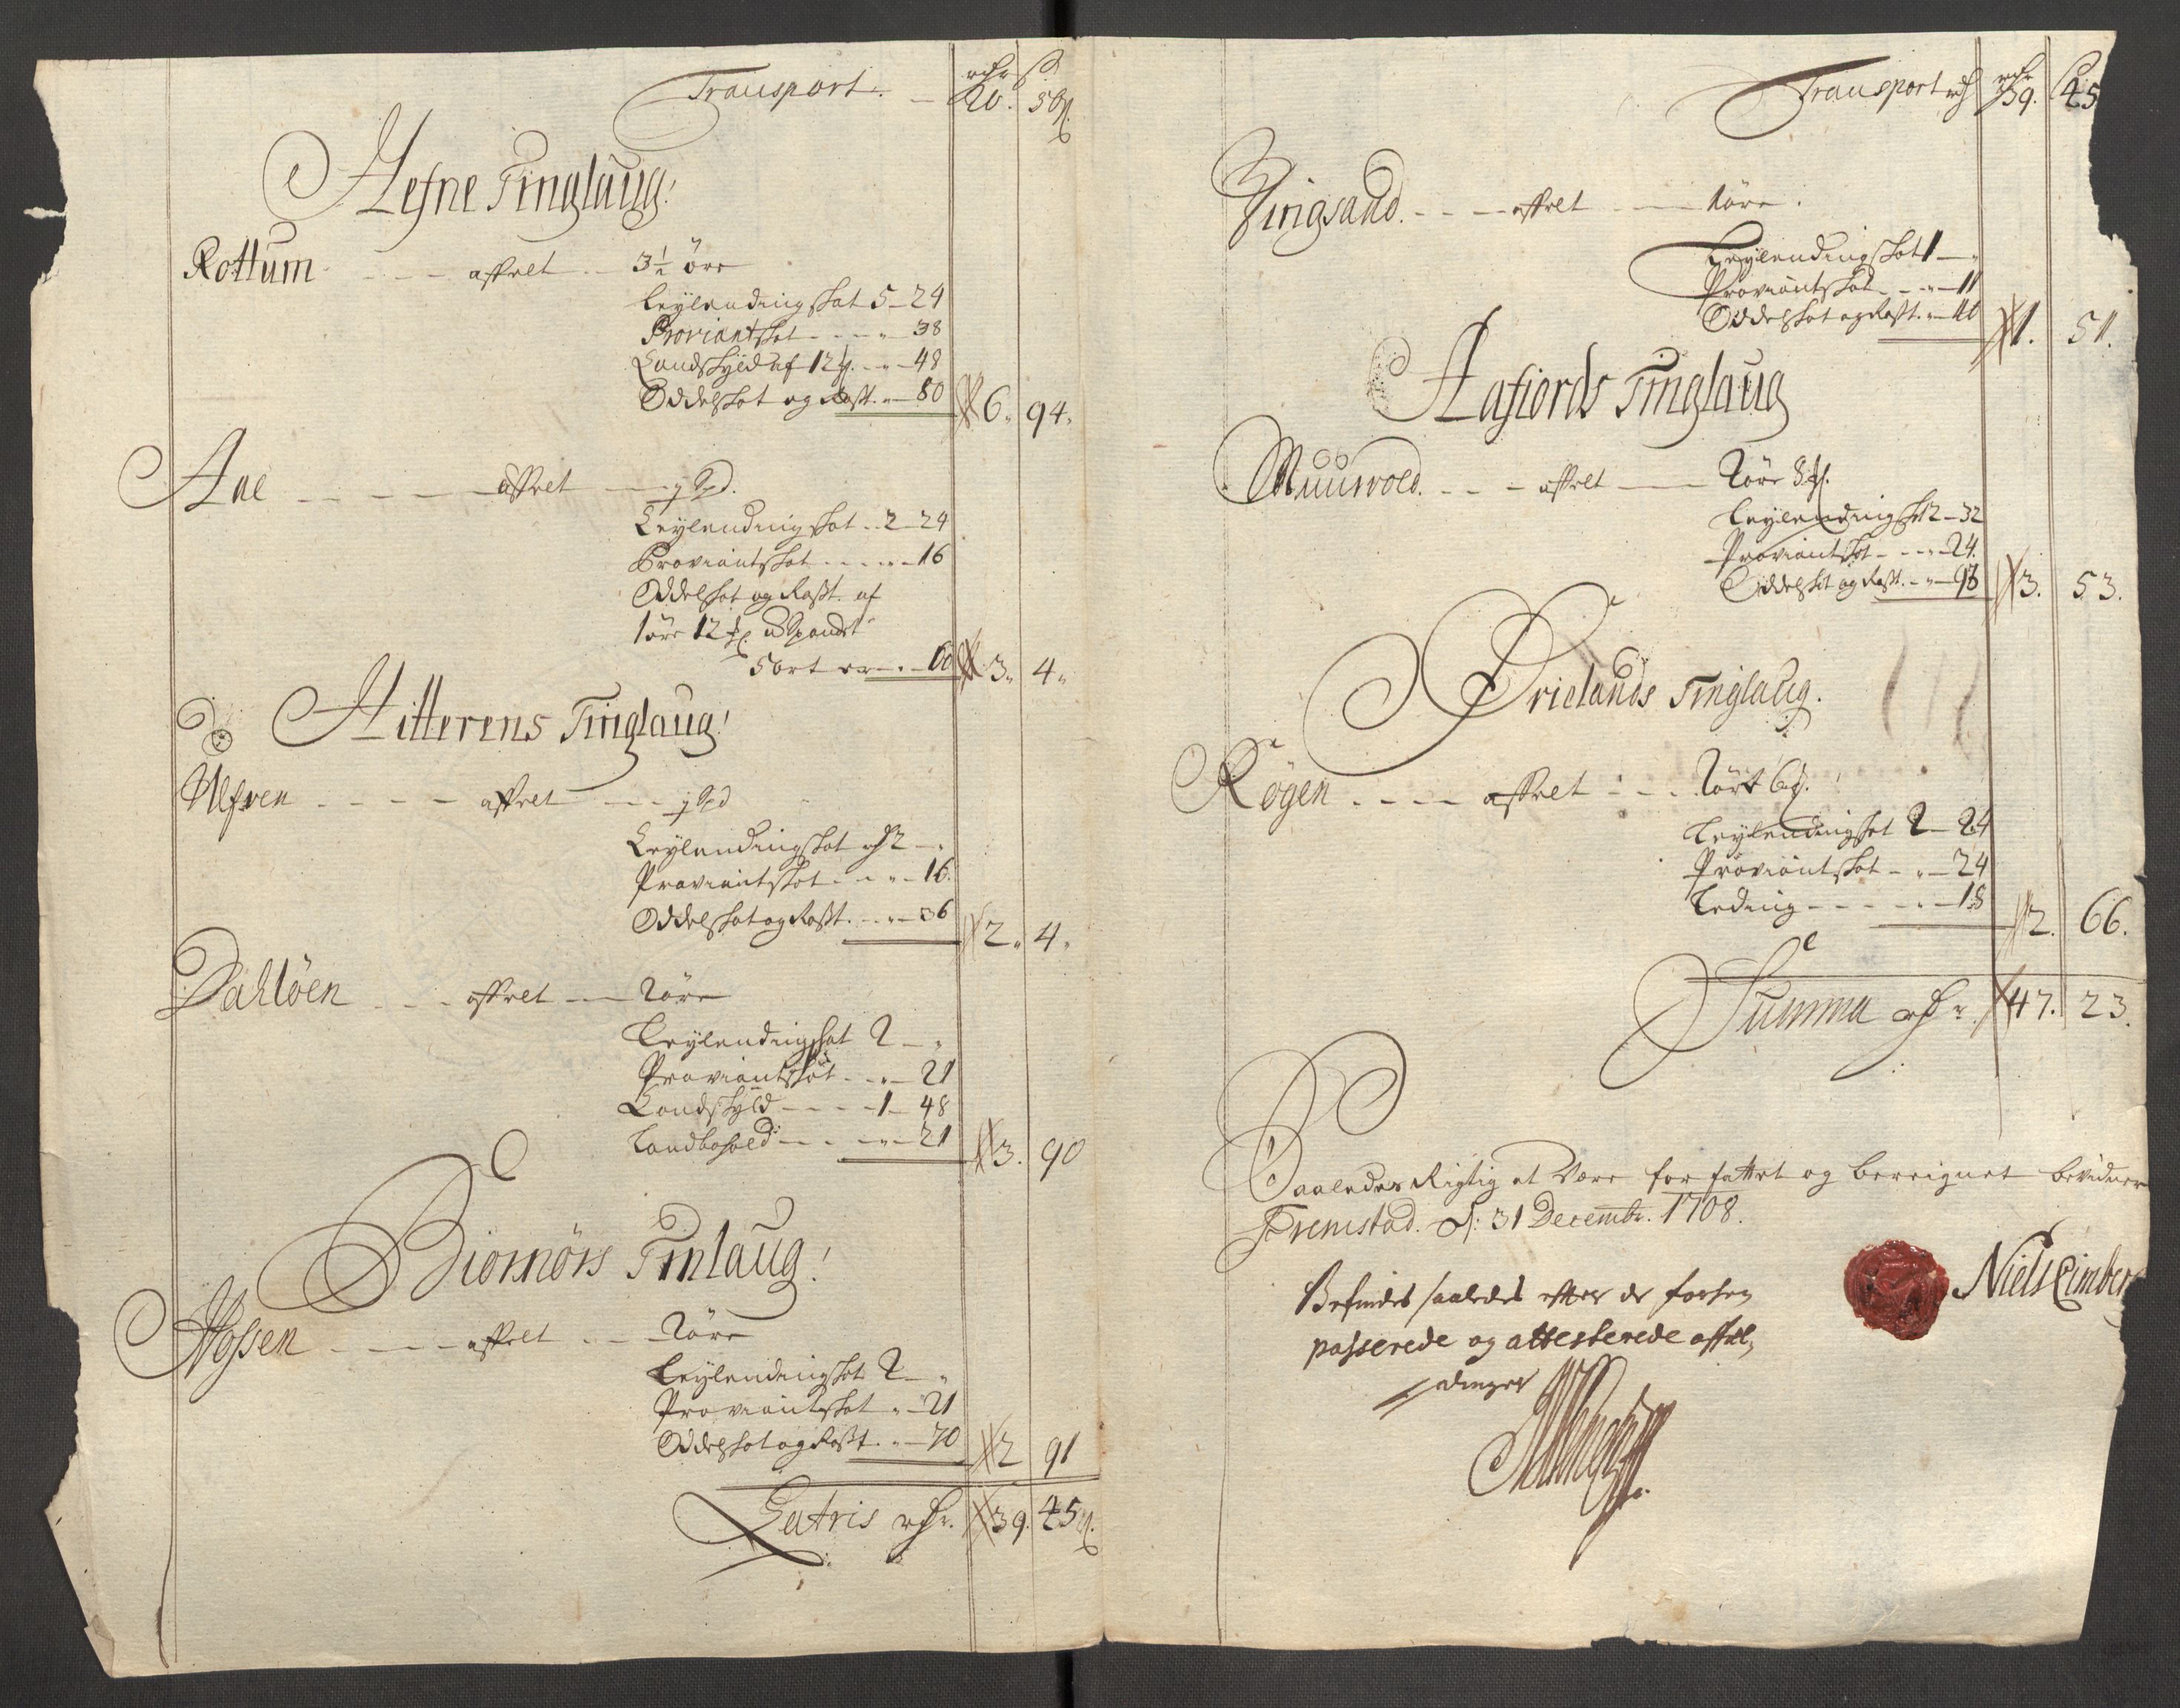 Transport. — 20. 50
Hefne Tinglaug!
Rottum — affelt — 3½ öre
Leÿlendingskat 5 — 24
Proviantskat — „ — 38
Landskÿld af 12 — „ — 48
Oddelskat og Roßt. „ — 80 6. 94.
Aae — affelt — j Spd.
Leÿlendingskat — 2 — 24
Proviantskat — „ — 16
Oddelskat og Roßt. af
1 öre 12 Spandet
5 ort er — „ — 60 3. 4.
Hitterens Tinglaug!
Ulfven — affelt — j Spd
Leÿlendingskat 2 — „
Proviantskat — „ — 16.
Oddelskat og Roßt. — „ — 36 2. 4.
Dahlöen — affelt — 2 öre
Leÿlendingskat 2 — „
Proviantskat — „ — 21
Landskÿld — 1 — 48
Landbohold — „ — 21 3. 90
Biornörs Tinlaug!
Hossen — affelt — 2 öre
Leÿlendingskat 2 — „
Proviantskat „ — 21
Oddelskat og Roßt. „ — 70 2 91
Latris rdr. 39. 45
Transport rd 39. 45
Tingsand — affelt — 1 öre.
Leÿlendingskat 1 — „
Proviantskat — „ — 11
Oddelskat og Roßt. „ — 40 1. 51.
Aafiords Tinglaug
Muurvold — affelt — 2 öre 8
Leÿlendingsk 2 — 32
Proviantskat — „ — 24.
Oddelskat og Roßt. — „ — 93 3. 53.
Ørielands Tinglaug.
Røgen — affelt — 2 öre 6
Leÿlendingskat 2 — 24
Proviantskat — „ — 24
Leding — „ — 18 2. 66.
Summa rdr. 47. 23.
Saaledes Rigtig at Være forfattet og bereignet bevidner
Fremstad. d: 31 Decembr. 1708.
Niels Cimber
Befindes saaledes efter de forhen
passerede og attesterede affæl-
dinger